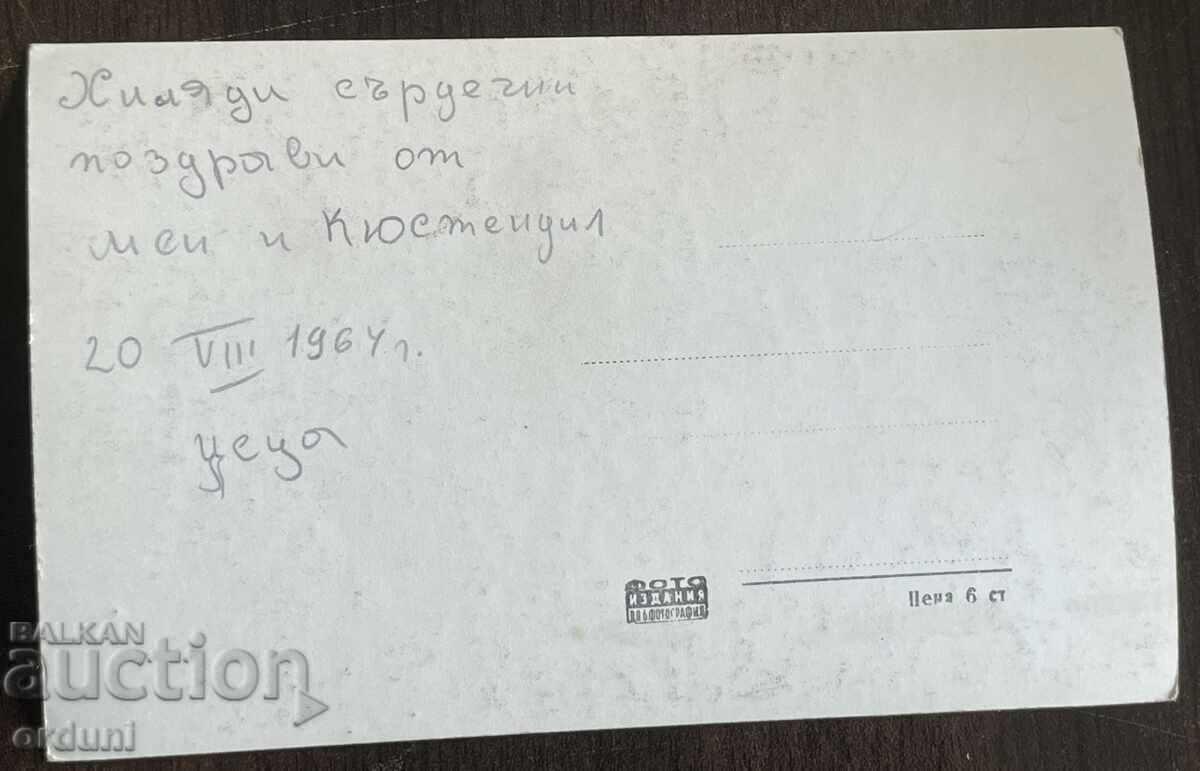 Хиляди сърдечни
поздрави от
мен и Кюстендил
20 VIII 1964 г.
Цеца
ФОТО
ИЗДАНИЯ
ДП БЪЛФОТОГРАФИЯ
Цена 6 ст
BALKAN
auction
orduni